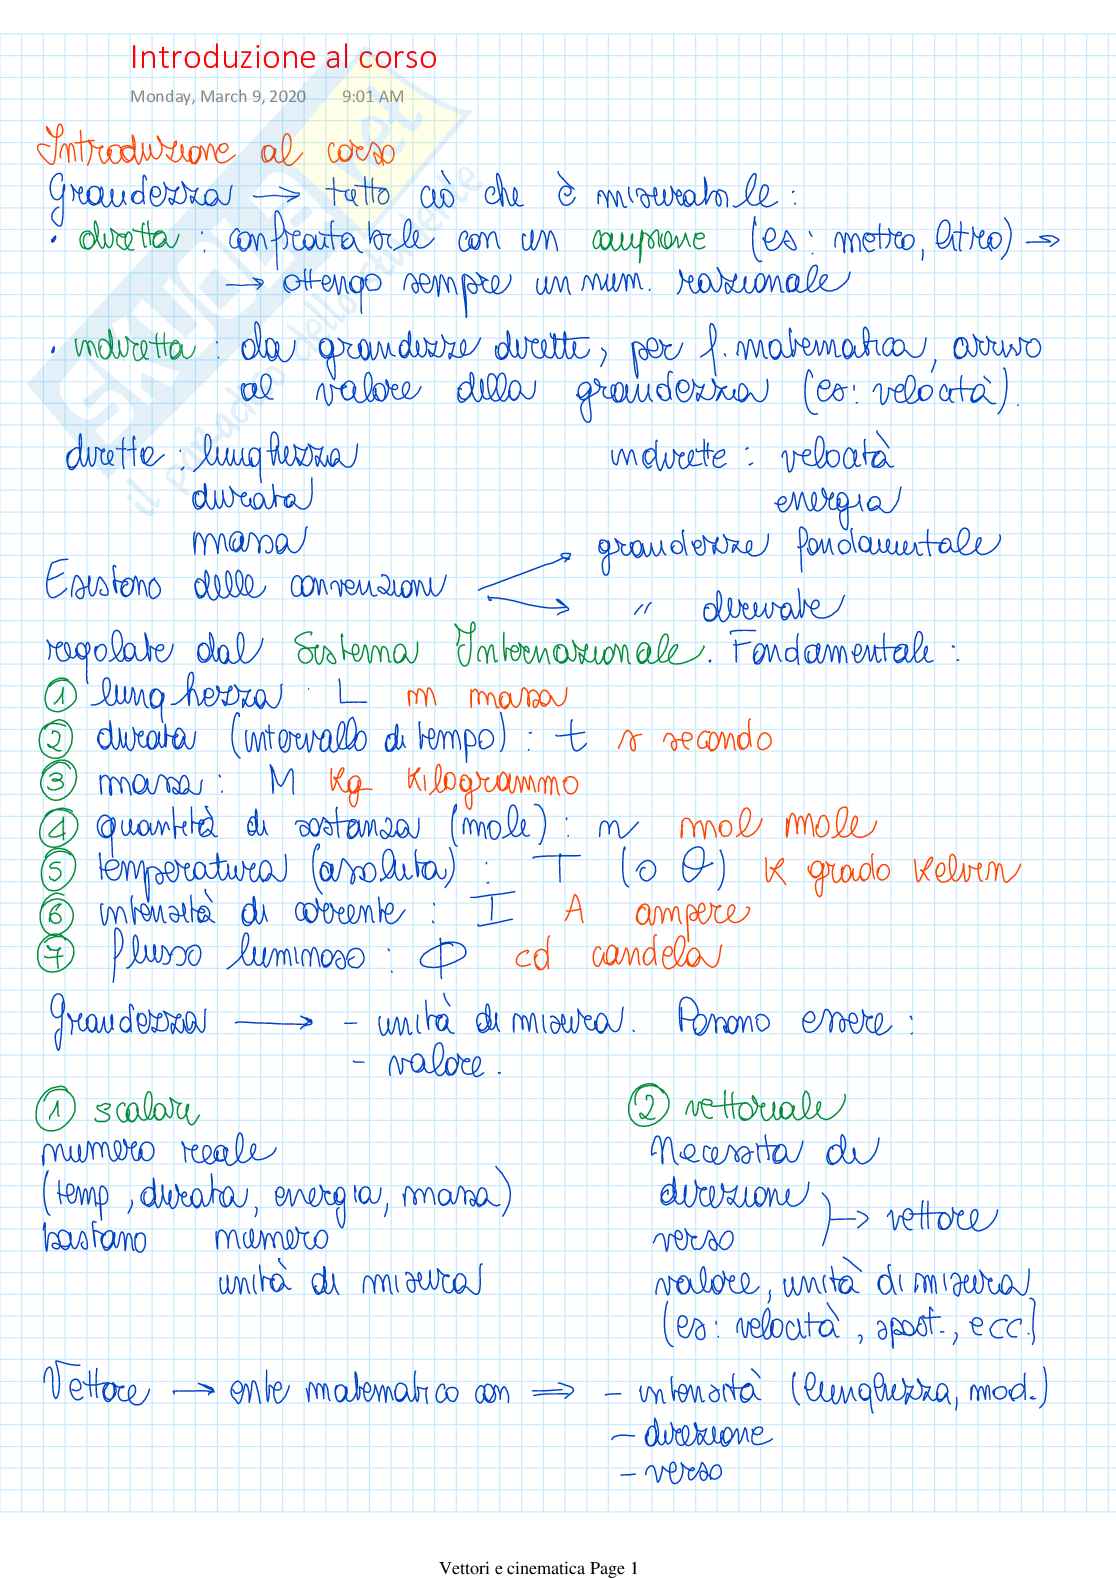 Introduzione al corso
Monday, March 9, 2020 9:01 AM
Introduzione al corso
Grandezza → tutto ciò che è misurabile :
• diretta : confrontabile con un campione (es : metro, litro) →
→ ottengo sempre un num. razionale
• indiretta : da grandezze dirette, per f. matematica, arrivo
al valore della grandezza (es: velocità).
dirette : lunghezza indirette : velocità
durata energia
massa
grandezze fondamentale
Esistono delle convenzioni
" derivate
regolate dal Sistema Internazionale. Fondamentale :
① lunghezza : L m massa
② durata (intervallo di tempo) : t s secondo
③ massa : M Kg Kilogrammo
④ quantità di sostanza (mole) : n mol mole
⑤ temperatura (assoluta) : T (o θ) K grado Kelvin
⑥ intensità di corrente : I A ampere
⑦ flusso luminoso : Φ cd candela
Grandezza → - unità di misura. Possono essere :
- valore.
① scalari ② vettoriale
numero reale Necessita di
(temp, durata, energia, massa) direzione
→ vettore
bastano numero verso
unità di misura valore, unità di misura
(es: velocità, spost., ecc.)
Vettore → ente matematico con ⇒ - intensità (lunghezza, mod.)
- direzione
- verso
Vettori e cinematica Page 1
SKUOLA.net
il paradiso dello studente